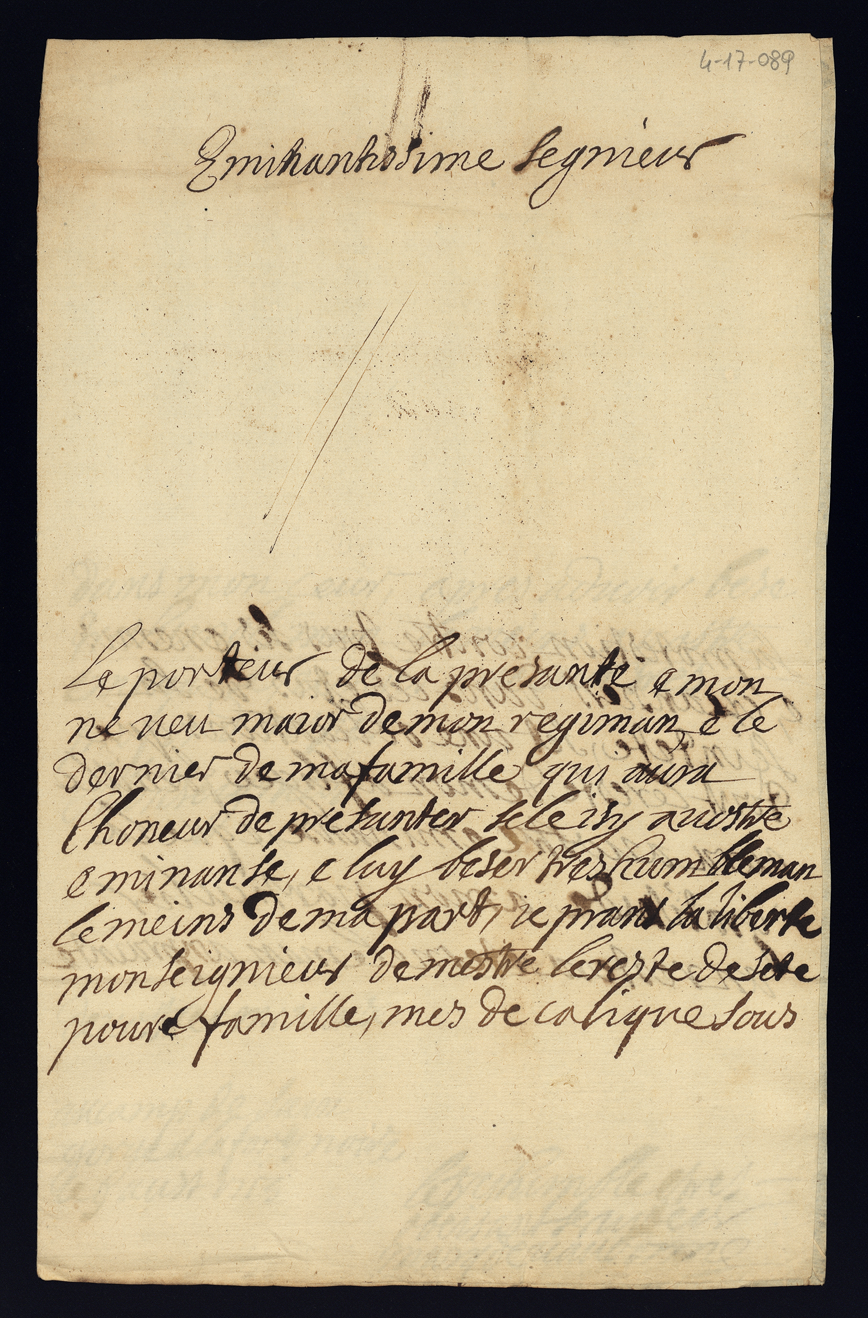 4-17-089
Eminantissime segnieur
Le porteur de la presante e mon
neveu maior de mon regiman, e le
dernier de ma famille qui aura
lhoneur de presanter
eminanse, e luy beser tres humbleman
le meins de ma part, ie prant la liberte
monseignieur de mestre lereste de sete
pouvre famille, mes de